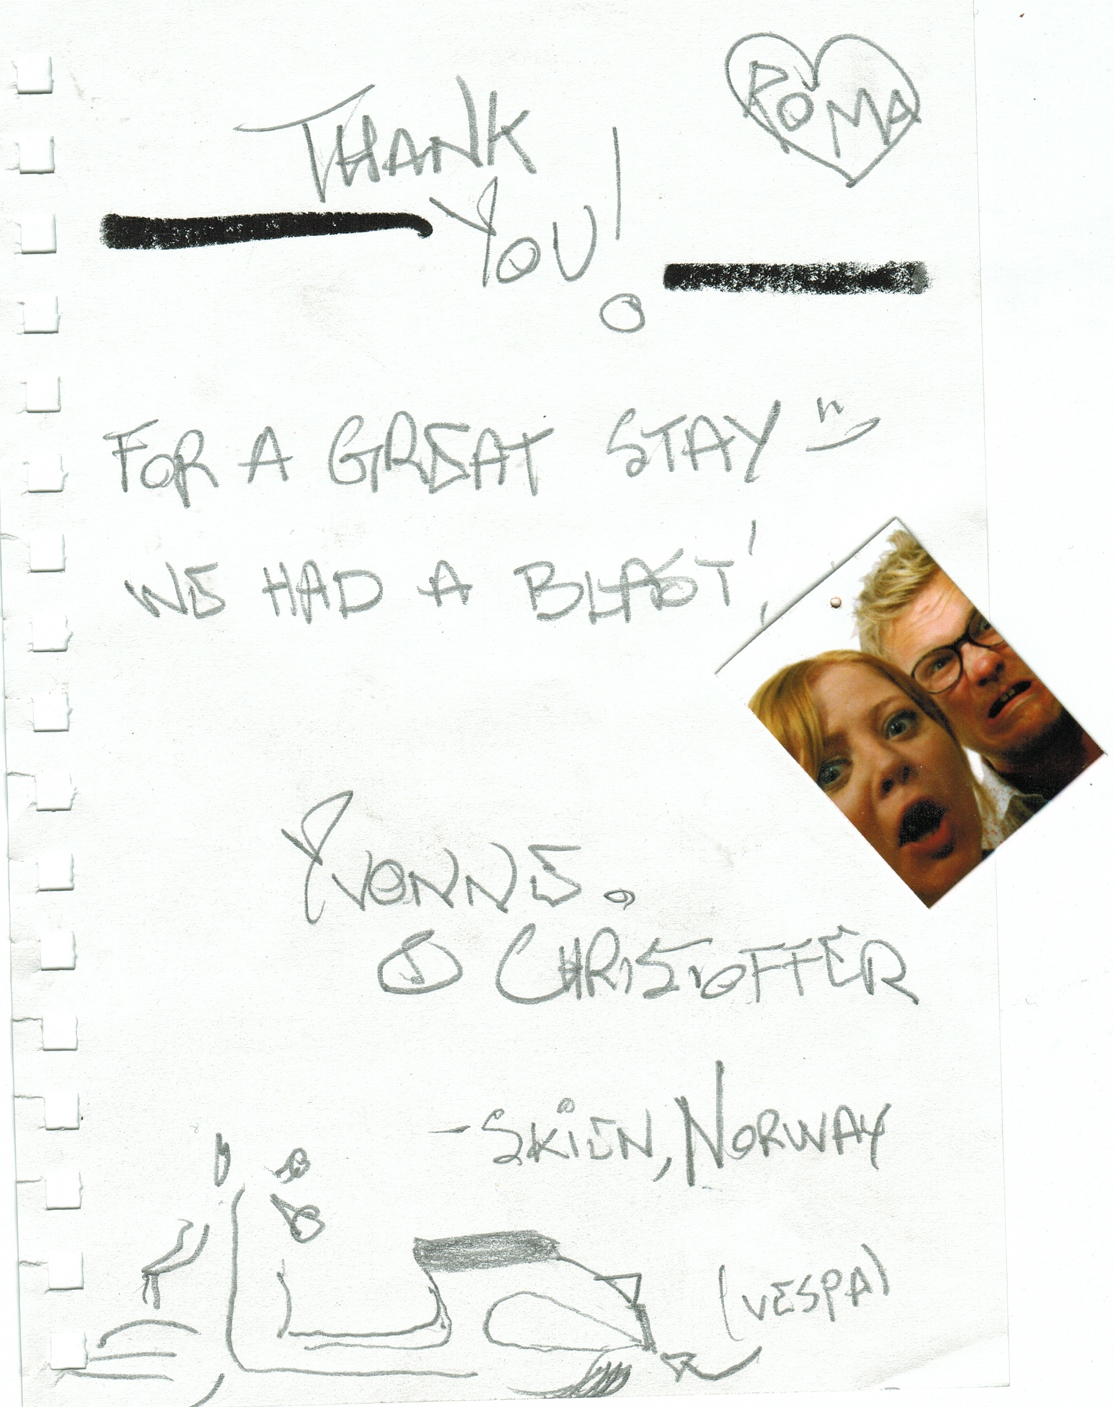 ROMA
THANK
YOU!
FOR A GREAT STAY
WE HAD A BLAST!
YVONNE.
& CHRISTOFFER
-SKIEN, NORWAY
(VESPA)